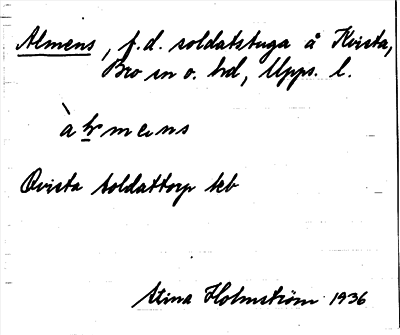 Almens, f.d. soldatstuga å Kvista,
Bro sn o. hd, Upps. l.
Qvista soldattorp
Stina Holmström 1936